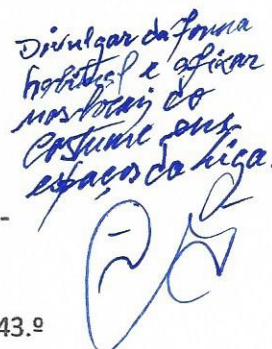 Divulgar da forma
habitual e afixar
nos locais do
costume ens
espaços da Liga.
-
43.º